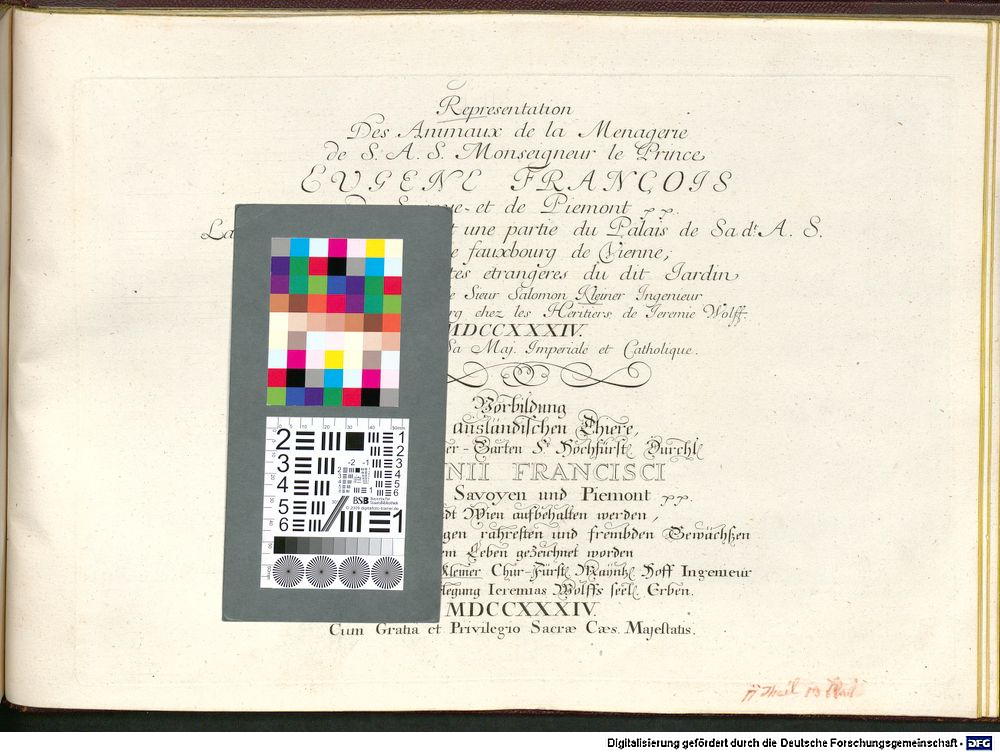 Representation
Des Animaux de la Menagerie
de S. A. S. Monseigneur le Prince
EUGENE FRANÇOIS
et de Piemont
La
t une partie du Palais de Sa dt. A. S.
e fauxbourg de Vienne,
tes etrangeres du dit Jardin
e Sieur Salomon Kleiner Ingenieur
rg chez les Heritiers de Ieremie Wolff.
MDCCXXXIV.
Sa Maj. Imperiale et Catholique.
Vorbildung
ausländischen Thiere,
er-Garten Sr. Hochfürstl. Durchl
NII FRANCISCI
Savoyen und Piemont
dt Wien aufbehalten werden,
gen rahresten und frembden Gewächßen
em Leben gezeichnet worden
Kleiner Chur-Fürstl. Mayntz. Hoff Ingenieur
legung Ieremias Wolffs seel. Erben.
MDCCXXXIV.
Cum Gratia et Privilegio Sacræ Cæs. Majestatis.
BSB
Digitalisierung gefördert durch die Deutsche Forschungsgemeinschaft - DFG